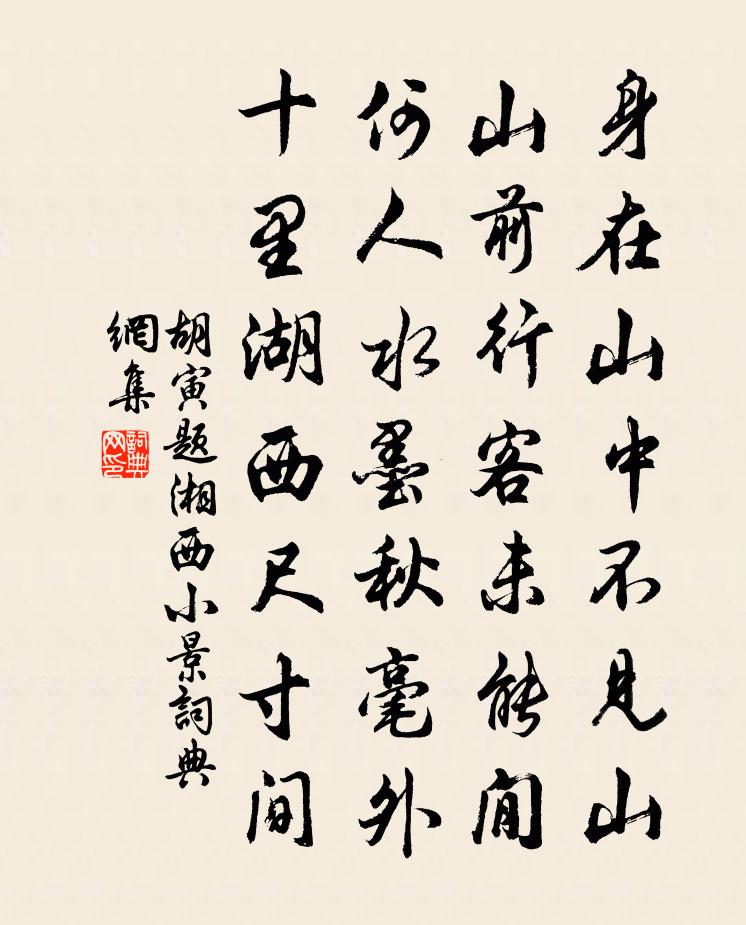 身在山中不見山
山前行客未能閒
何人水墨秋毫外
十里湖西尺寸間
胡寅題湘西小景詞典
網集
詞典
网印